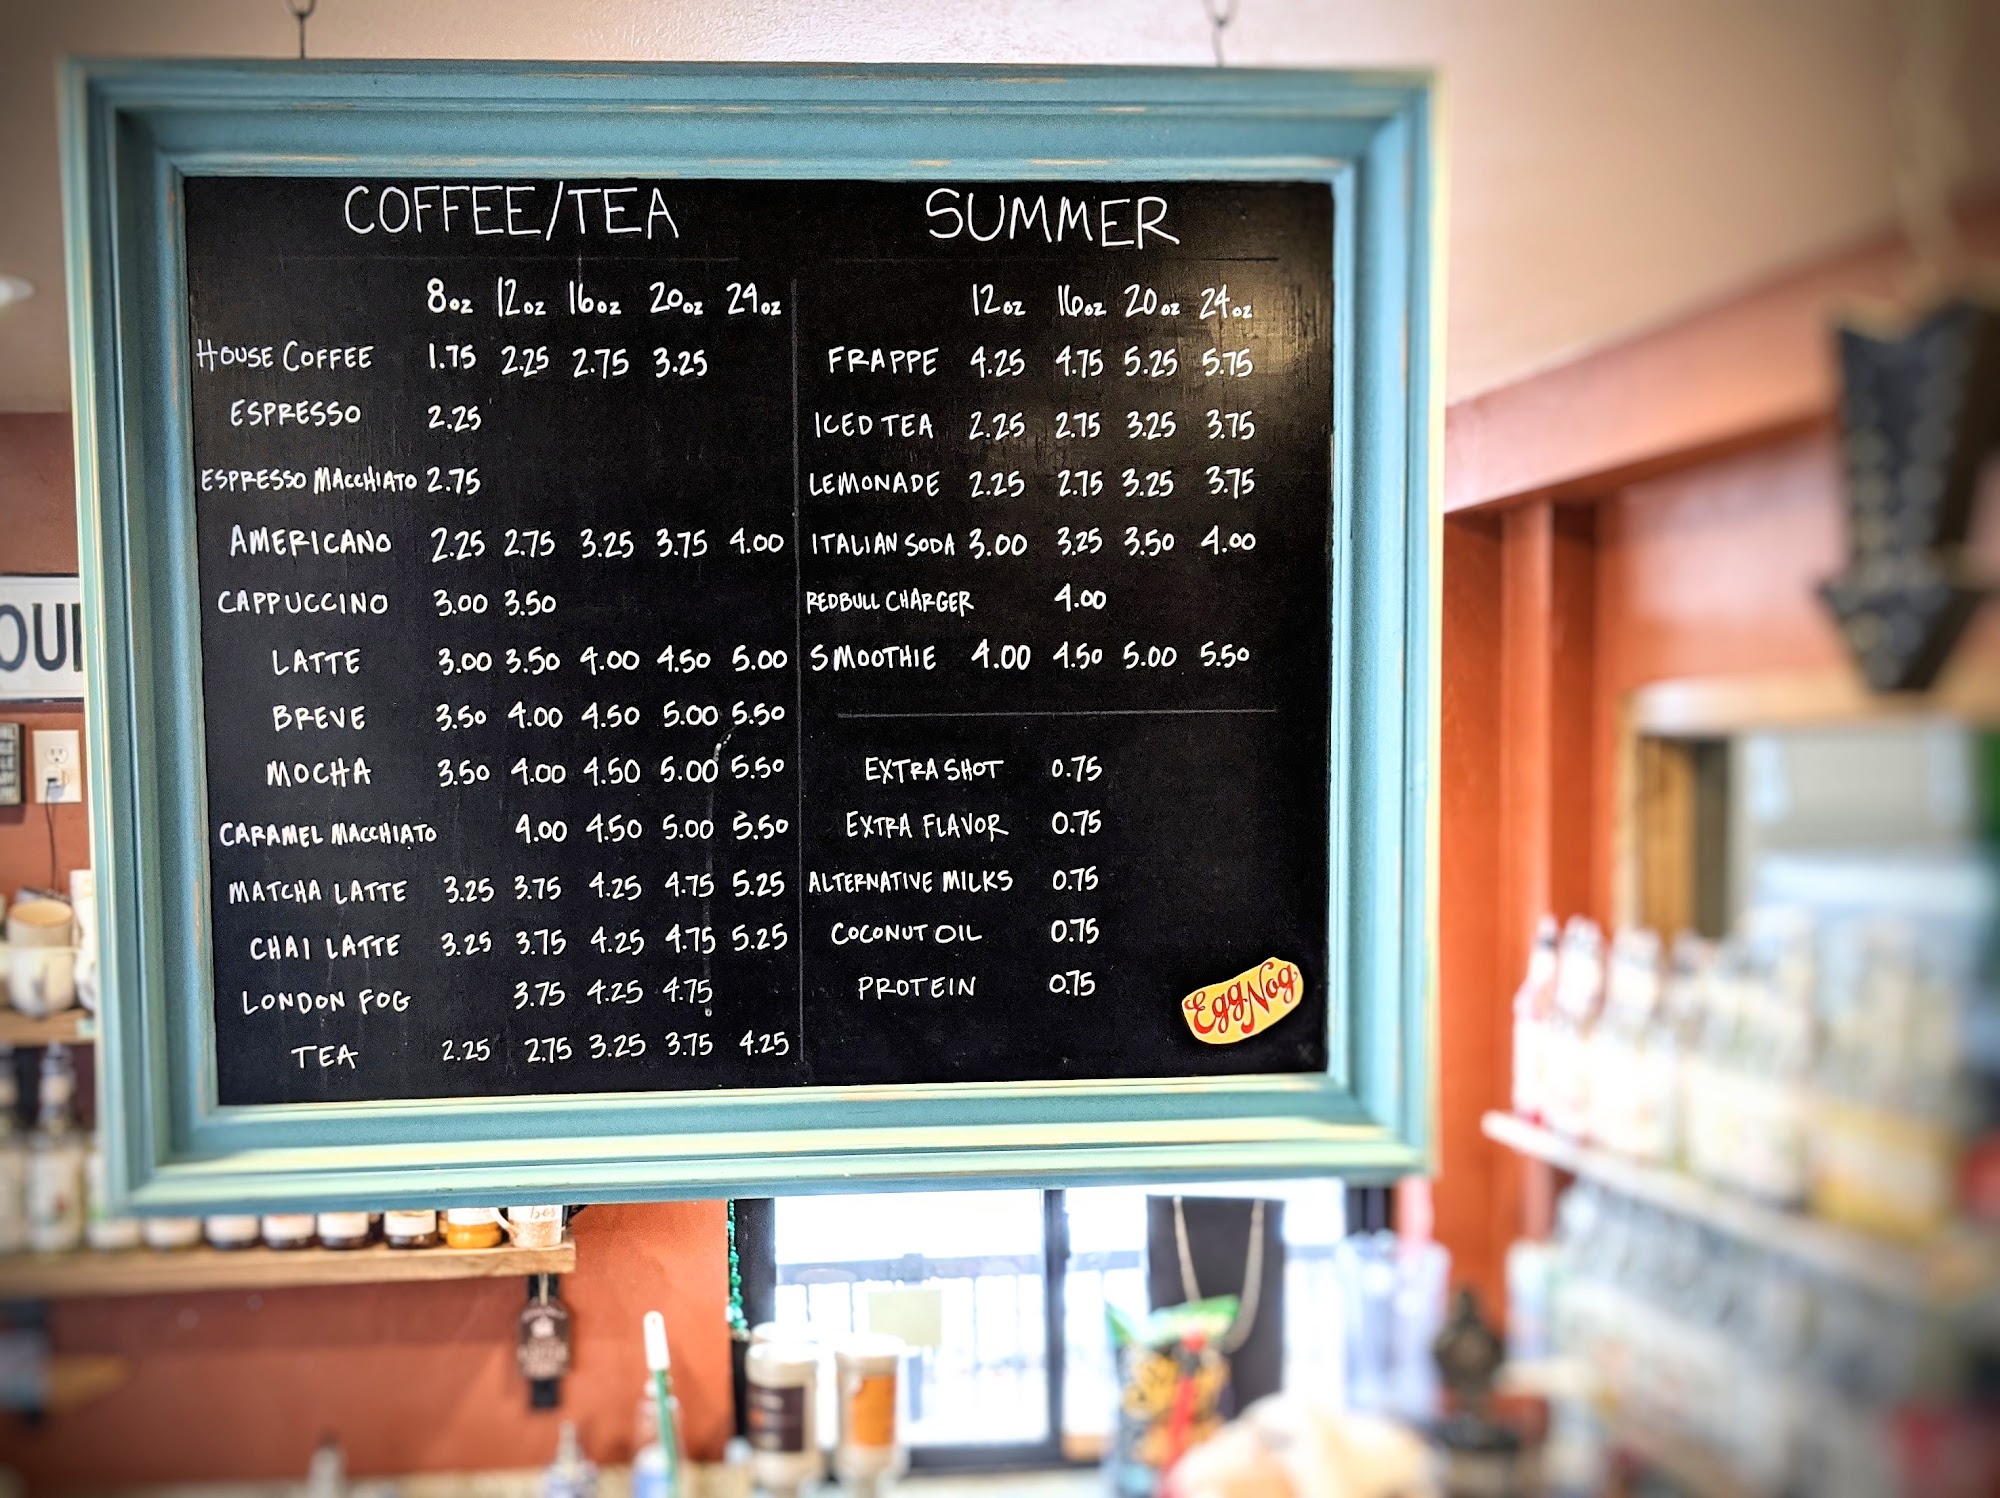 COFFEE/TEA
8oz 12oz 16oz 20oz 24oz
HOUSE COFFEE 1.75 2.25 2.75 3.25
ESPRESSO 2.25
ESPRESSO MACCHIATO 2.75
AMERICANO 2.25 2.75 3.25 3.75 4.00
CAPPUCCINO 3.00 3.50
LATTE 3.00 3.50 4.00 4.50 5.00
BREVE 3.50 4.00 4.50 5.00 5.50
MOCHA 3.50 4.00 4.50 5.00 5.50
CARAMEL MACCHIATO 4.00 4.50 5.00 5.50
MATCHA LATTE 3.25 3.75 4.25 4.75 5.25
CHAI LATTE 3.25 3.75 4.25 4.75 5.25
LONDON FOG 3.75 4.25 4.75
TEA 2.25 2.75 3.25 3.75 4.25
SUMMER
12oz 16oz 20oz 24oz
FRAPPE 4.25 4.75 5.25 5.75
ICED TEA 2.25 2.75 3.25 3.75
LEMONADE 2.25 2.75 3.25 3.75
ITALIAN SODA 3.00 3.25 3.50 4.00
REDBULL CHARGER 4.00
SMOOTHIE 4.00 4.50 5.00 5.50
EXTRA SHOT 0.75
EXTRA FLAVOR 0.75
ALTERNATIVE MILKS 0.75
COCONUT OIL 0.75
PROTEIN 0.75
EggNog